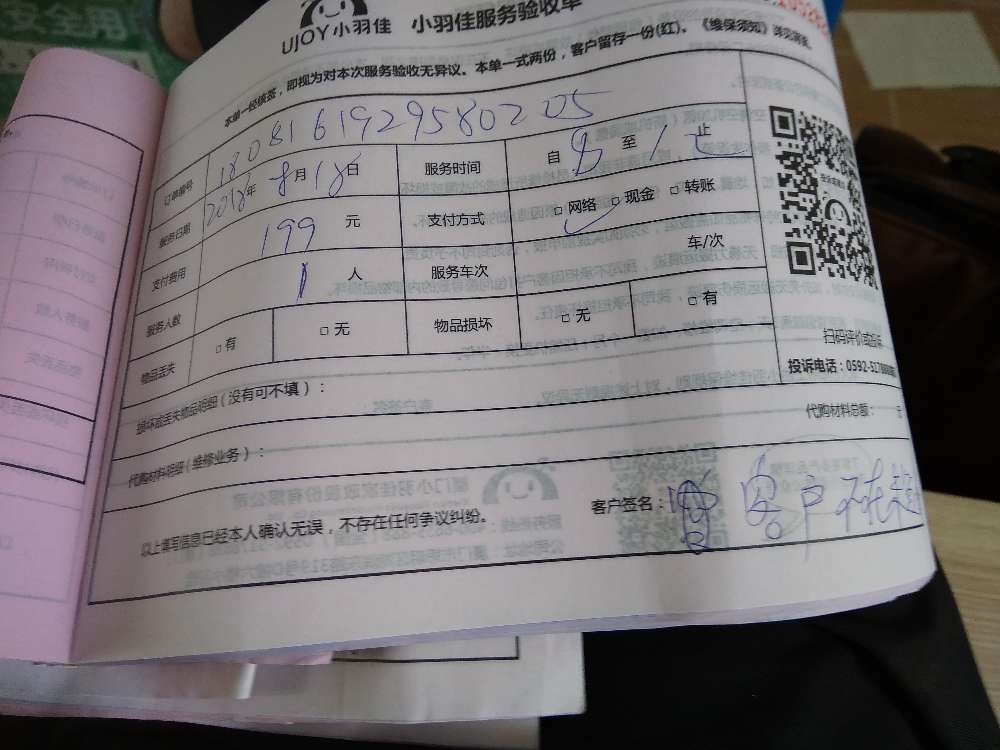 UJOY小羽佳 小羽佳服务验收单
本单一经核签，即视为对本次服务验收无异议。本单一式两份，客户留存一份(红)。《维保须知》详见背面。
订单编号 18081619295802 05
服务日期 2018年 8月18日 服务时间 自 8 至 12 止
支付费用 199 元 支付方式 □ 网络 □ 现金 □ 转账
服务人数 1 人 服务车次 车/次
物品丢失 □ 有 □ 无 物品损坏 □ 无 □ 有
损坏或丢失物品明细（没有可不填）：
扫码评价或投诉
投诉电话：0592-
代购材料明细(维修业务)： 代购材料总额： 元
以上填写信息已经本人确认无误，不存在任何争议纠纷。
客户签名： 客户不在